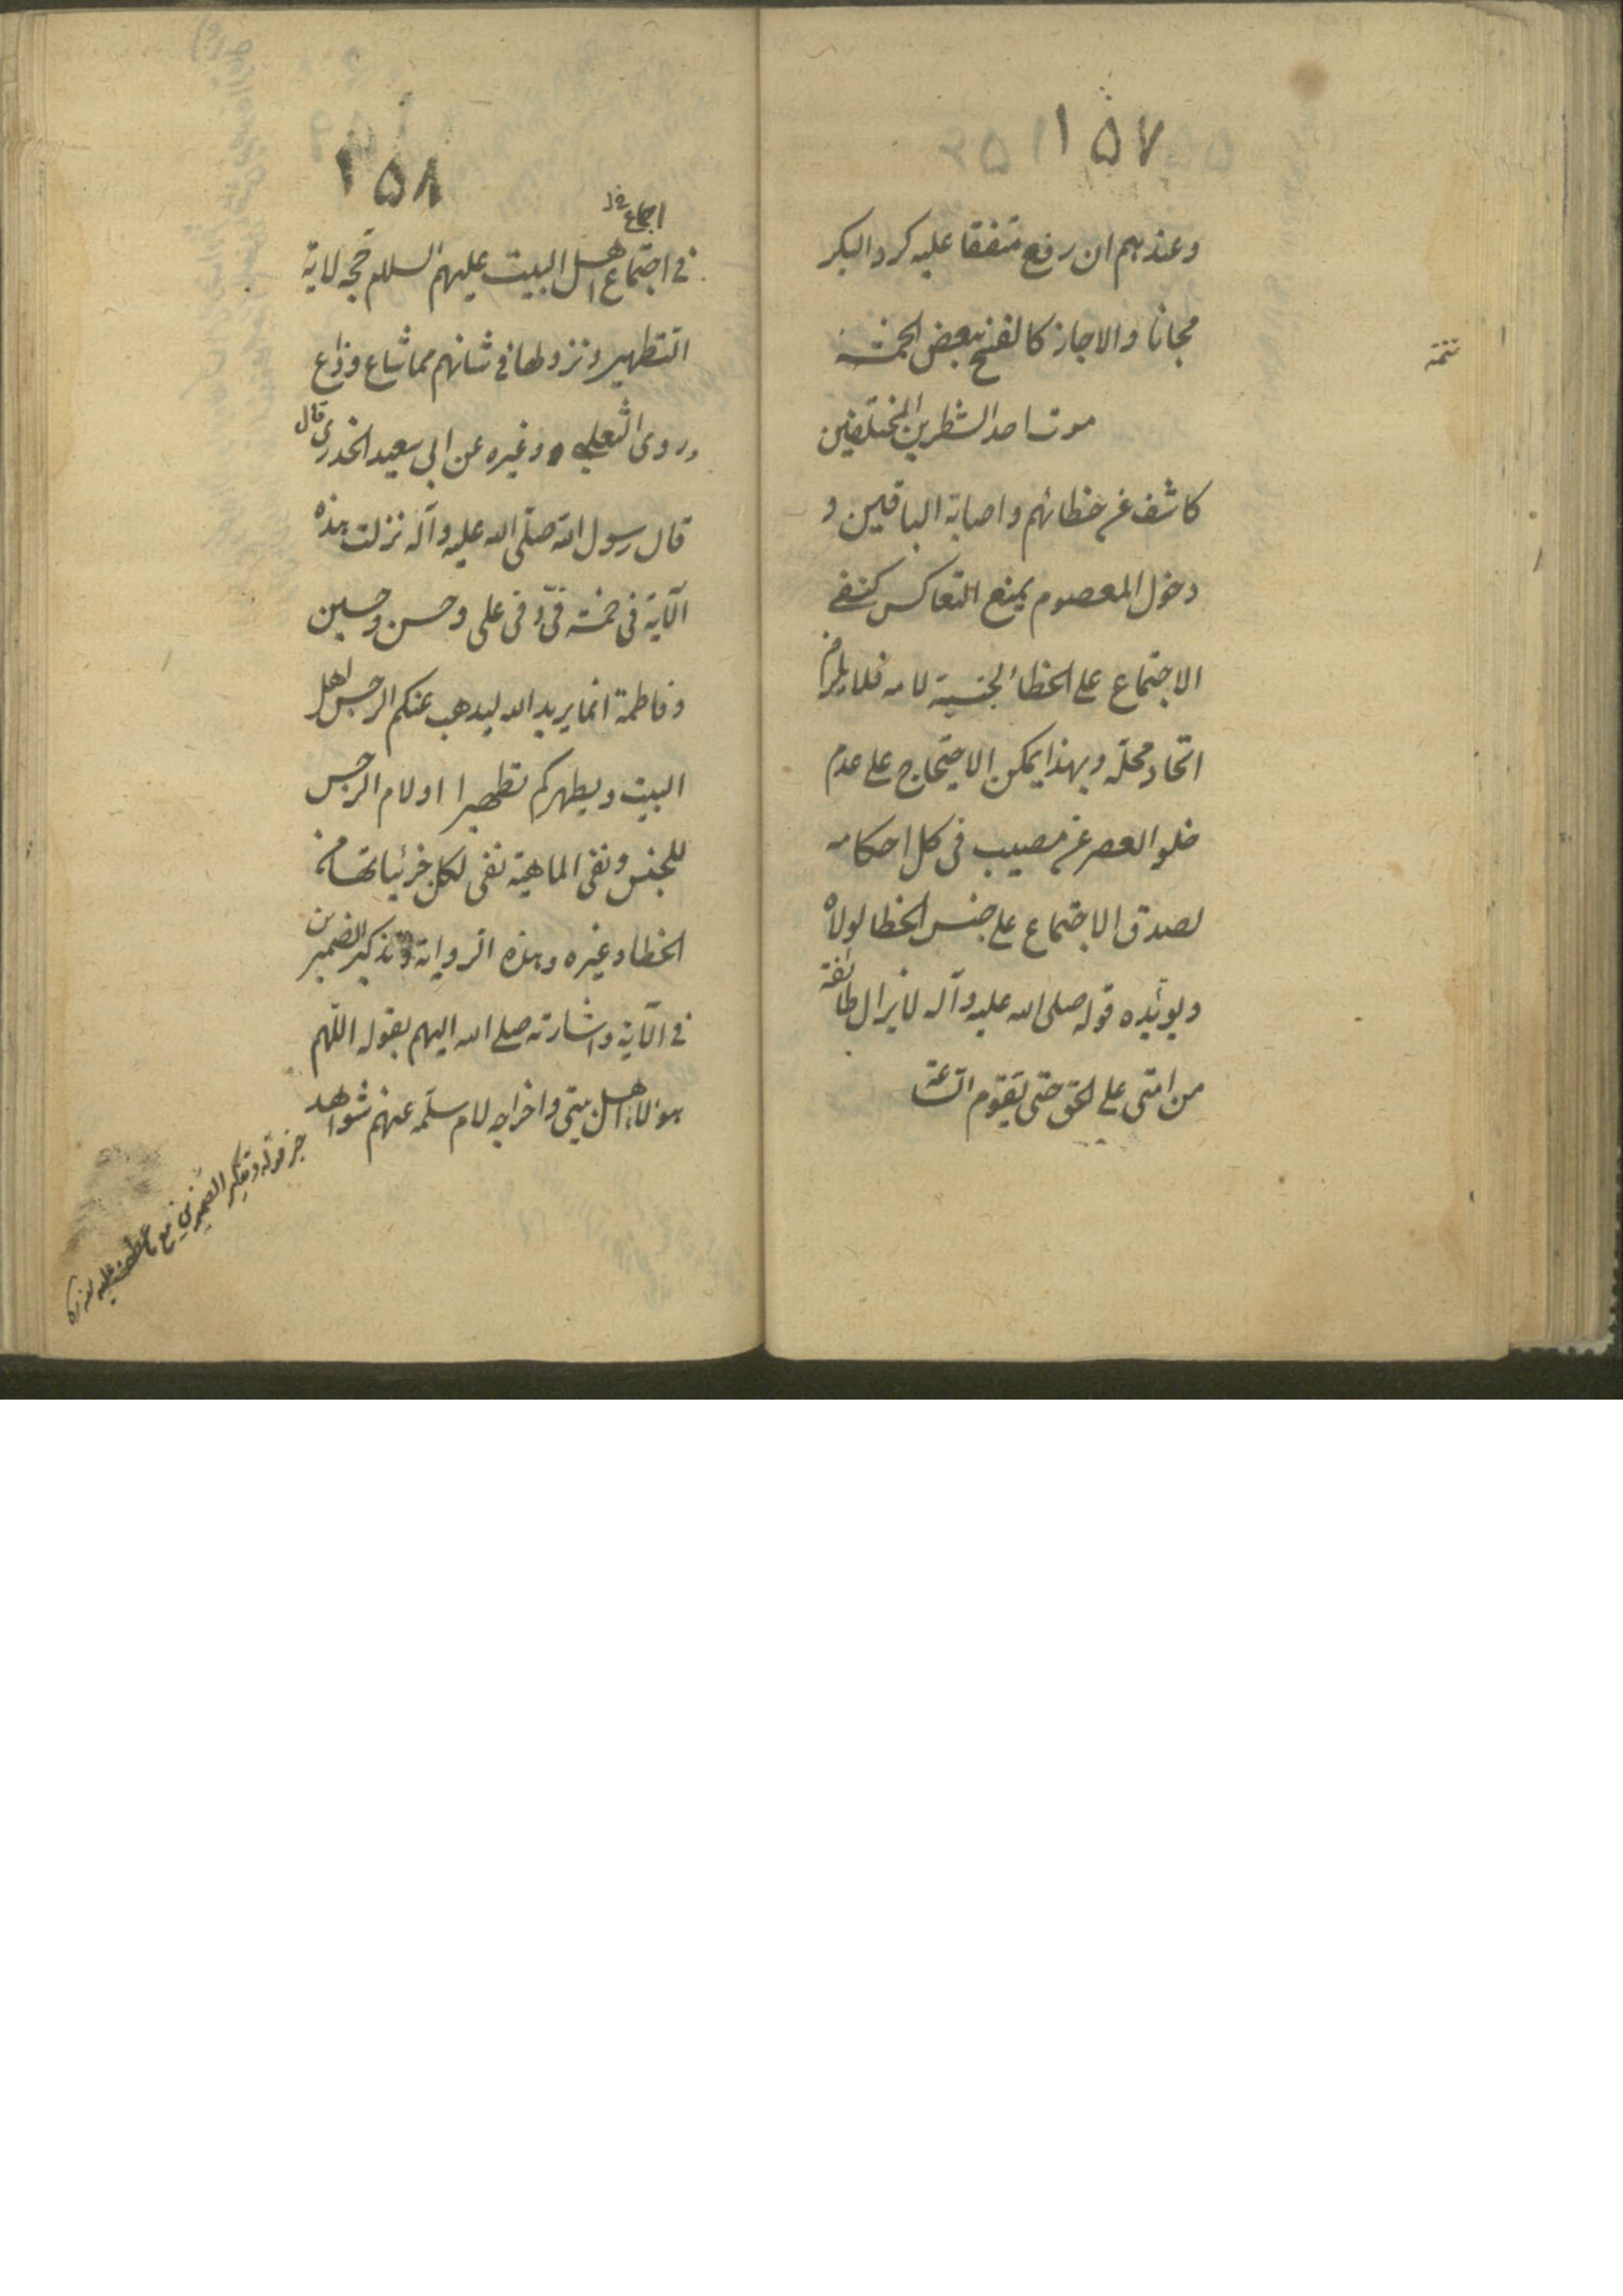 ١٥٧
وعندهم ان رفع متفقا عليه كرد البكر
مجانا والا جاز كالفسخ ببعض الخمسة
تتمة
موت احد الشطرين المختلفين
كاشف عن خطائهم واصابة الباقين و
دخول المعصوم يمنع التعاكس كنفى
الاجتماع على الخطأ لجنسية لامه فلا يلزم
اتحاد محله وبهذا يمكن الاحتجاج على عدم
خلو العصر عن مصيب فى كل احكامه
لصدق الاجتماع على جنس الخطا لولاه
ويؤيده قوله صلى الله عليه وآله لا يزال طائفة
من امتى على الحق حتى تقوم الساعة
١٥٨
اجماع خ ل
فى اجتماع اهل البيت عليهم السلام حجه لاية
التطهير ونزولها فى شانهم مما شاع وذاع
وروى الثعلبى وغيره عن ابى سعيد الخدرى قال
قال رسول الله صلى الله عليه وآله نزلت هذه
الآية فى خمسة فىّ وفى على وحسن وحسين
وفاطمة انما يريد الله ليذهب عنكم الرجس اهل
البيت ويطهركم تطهيرا اولام الرجس
للجنس ونفى الماهية نفى لكل جزئياتها من
الخطا وغيره وهذه الرواية وتذكير الضميرين
فى الآية واشارته صلى الله اليهم بقوله اللهم
هؤلاء اهل بيتى واخراجه لام سلمه عنهم شواهد
قوله وتذكير الضميرين مع عطف عليه